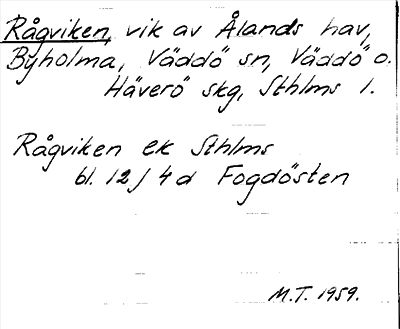 Rågviken, vik av Ålands hav,
Byholma, Väddö sn, Väddö o.
Häverö skg, Sthlms l.
Rågviken ek Sthlms
bl. 12 j 4 d Fogdösten
M.T. 1959.